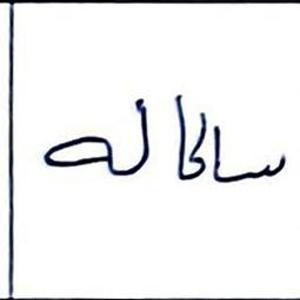 ساکاله